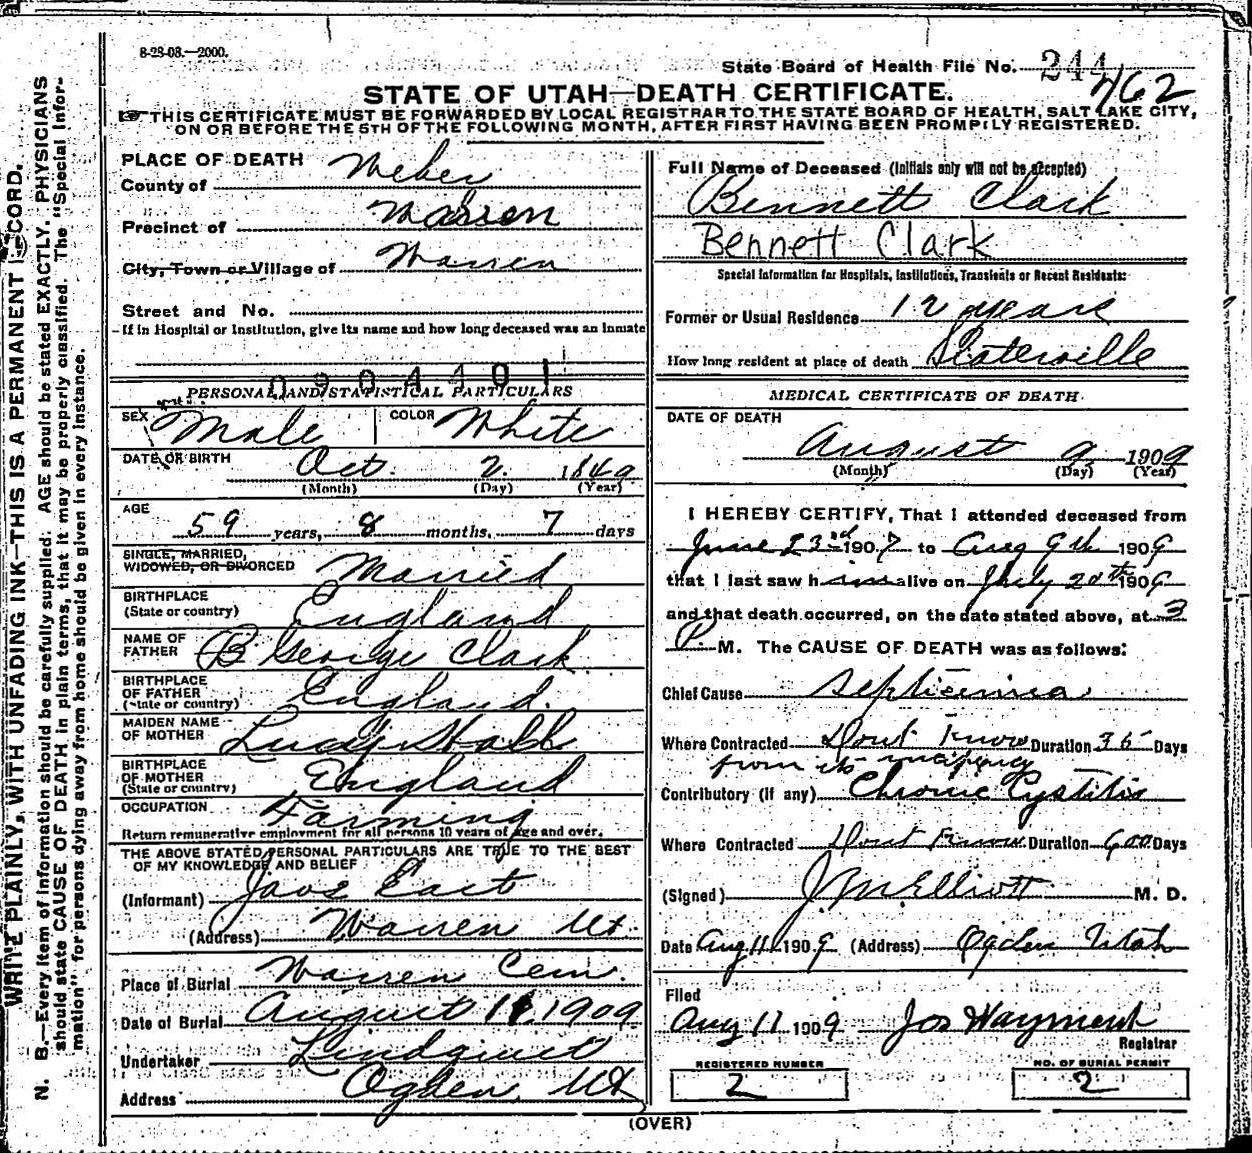 8-23-08.—2000.
State Board of Health File No. 244
762
STATE OF UTAH—DEATH CERTIFICATE.
THIS CERTIFICATE MUST BE FORWARDED BY LOCAL REGISTRAR TO THE STATE BOARD OF HEALTH, SALT LAKE CITY,
ON OR BEFORE THE 5TH OF THE FOLLOWING MONTH, AFTER FIRST HAVING BEEN PROMPTLY REGISTERED.
WRITE PLAINLY, WITH UNFADING INK—THIS IS A PERMANENT RECORD.
N. B.—Every item of information should be carefully supplied. AGE should be stated EXACTLY. PHYSICIANS
should state CAUSE OF DEATH in plain terms, that it may be properly classified. The "Special Infor-
mation" for persons dying away from home should be given in every instance.
PLACE OF DEATH
County of Weber
Precinct of Warren
City, Town or Village of Warren
Street and No.
If in Hospital or Institution, give its name and how long deceased was an Inmate
0904401
PERSONAL AND STATISTICAL PARTICULARS
SEX Male COLOR White
DATE OF BIRTH Oct. 2 1849
(Month) (Day) (Year)
AGE
59 years, 8 months, 7 days
SINGLE, MARRIED,
WIDOWED, OR DIVORCED Married
BIRTHPLACE
(State or country) England
NAME OF
FATHER B. George Clark
BIRTHPLACE
OF FATHER
(State or country) England.
MAIDEN NAME
OF MOTHER Lucy Hall
BIRTHPLACE
OF MOTHER
(State or country) England
OCCUPATION Farming
Return remunerative employment for all persons 10 years of age and over.
THE ABOVE STATED PERSONAL PARTICULARS ARE TRUE TO THE BEST
OF MY KNOWLEDGE AND BELIEF
(Informant) East
(Address) Warren Ut.
Place of Burial Warren Cem.
Date of Burial August 11, 1909
Undertaker Lindquist
Address Ogden, Ut
Full Name of Deceased (Initials only will not be accepted)
Bennett Clark
Bennett Clark
Special Information for Hospitals, Institutions, Transients or Recent Residents:
Former or Usual Residence 12 years
How long resident at place of death Slaterville
MEDICAL CERTIFICATE OF DEATH
DATE OF DEATH
August 9 1909
(Month) (Day) (Year)
I HEREBY CERTIFY, That I attended deceased from
June 23rd 1907 to Aug 9th 1909
that I last saw him alive on July 20th 1909
and that death occurred, on the date stated above, at 3
P. M. The CAUSE OF DEATH was as follows:
Chief Cause Septicemia
Where Contracted Dont Know Duration 35 Days
from its incipency
Contributory (if any) Chronic Cystitis
Where Contracted Dont Know Duration 600 Days
(Signed) J. M. Elliott M. D.
Date Aug 11 1909 (Address) Ogden Utah
Filed
Aug 11 1909 Jos Wayment
Registrar
REGISTERED NUMBER
2
NO. OF BURIAL PERMIT
2
(OVER)